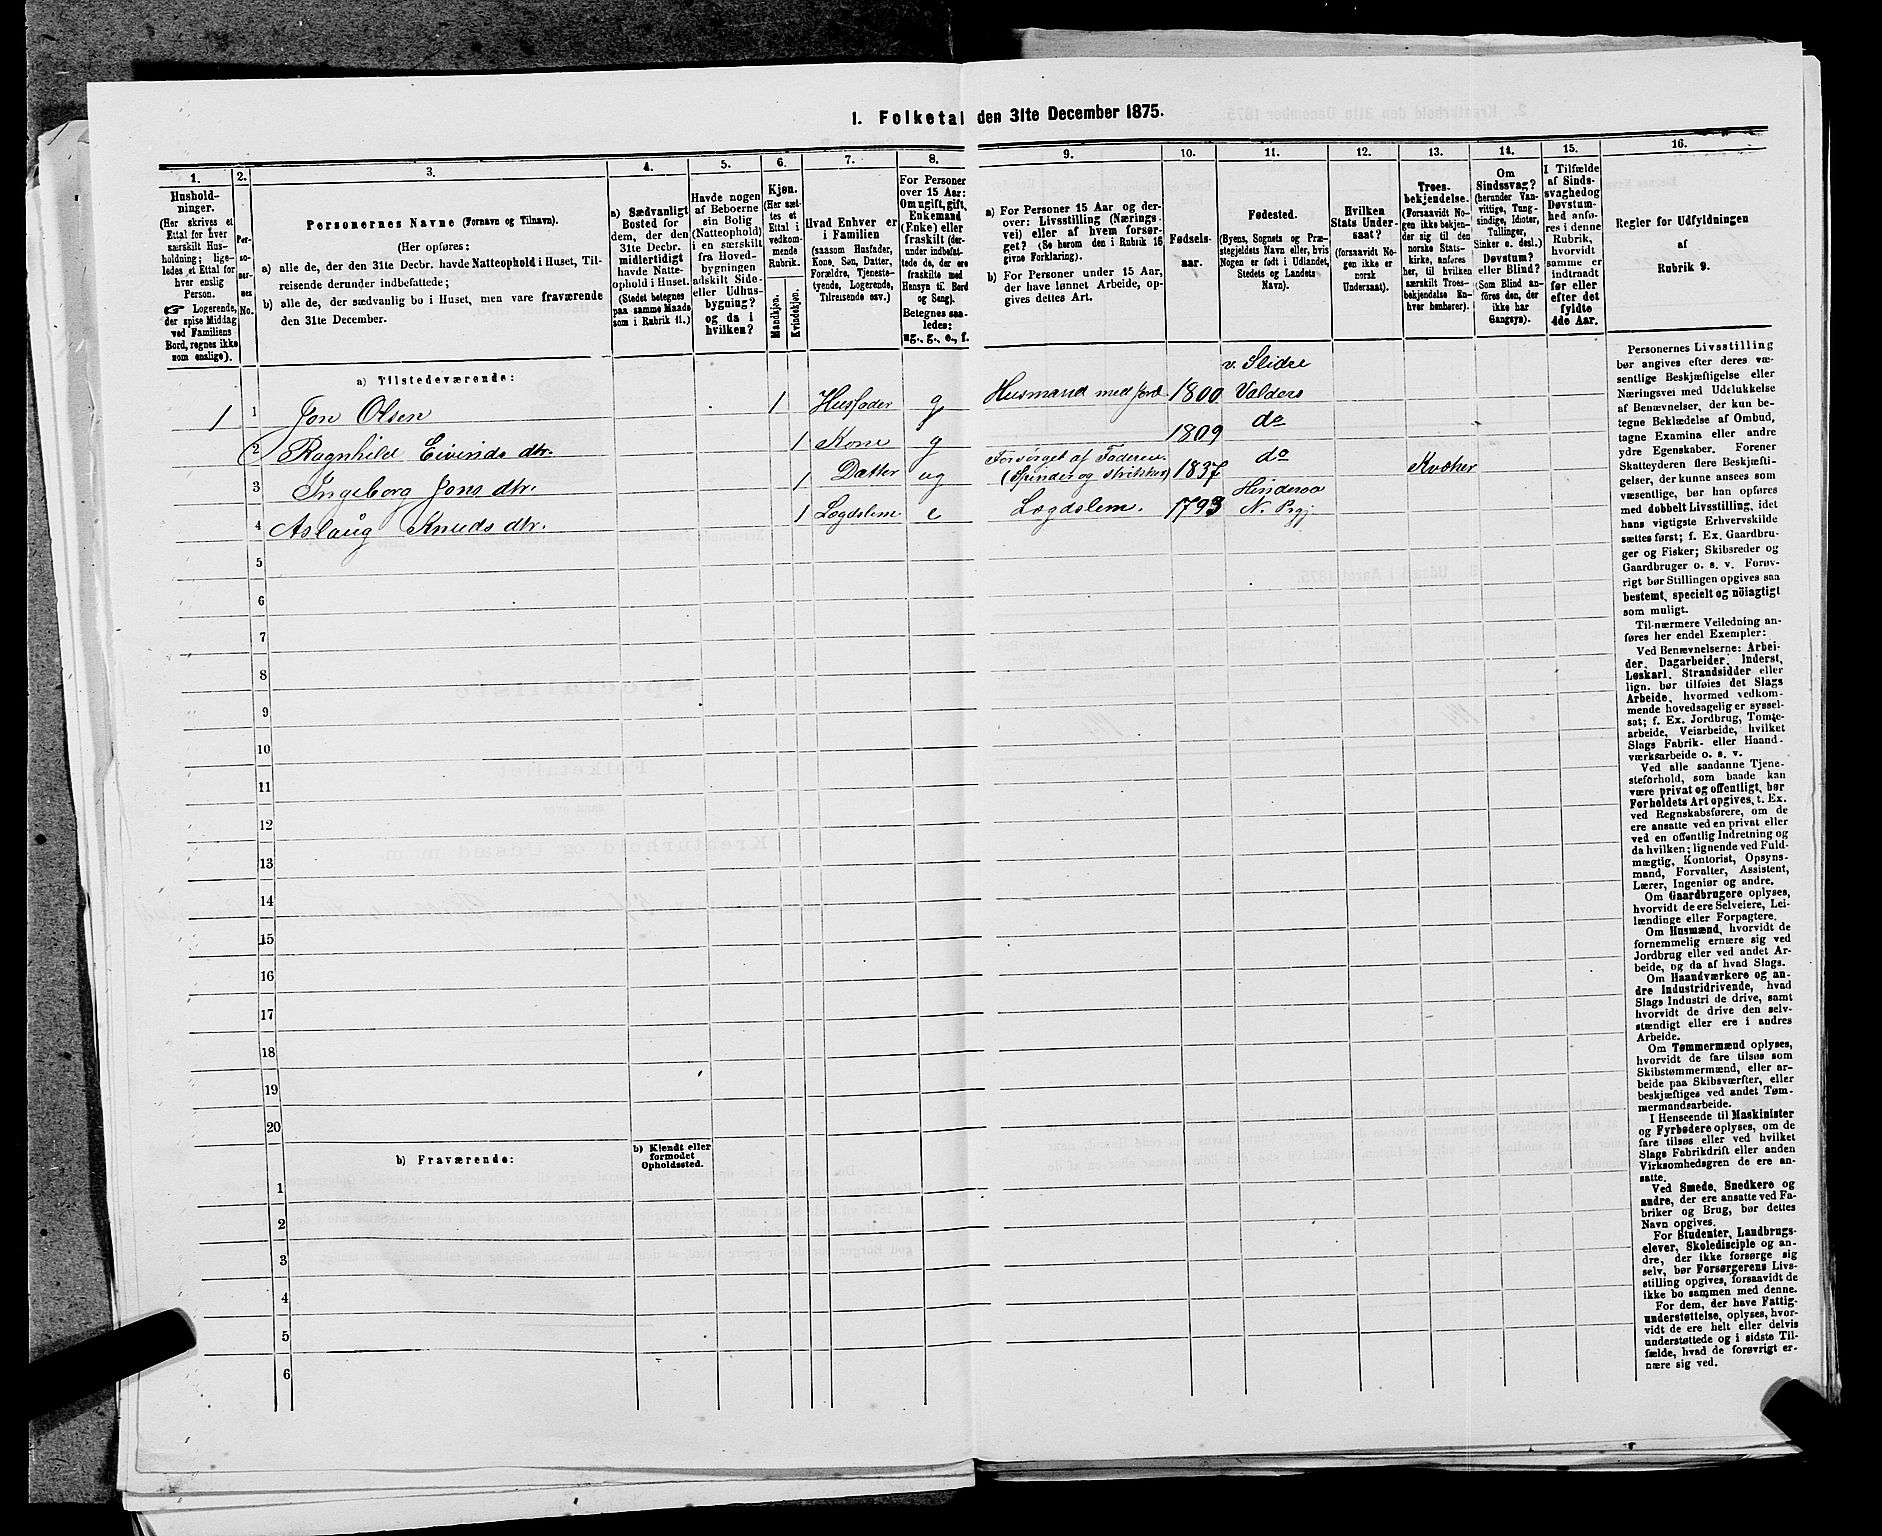 1. Folketal den 31te December 1875.
1.
Hushold-
ninger.
(Her skrives et
Ettal for hver
særskilt Hus-
holdning; lige-
ledes et Ettal for
hver enslig
Person.
Logerende,
der spise Middag
ved Familiens
Bord, regnes ikke
som enslige).
2.
Per-
so-
ner-
nes
No.
3.
Personernes Navne (Fornavn og Tilnavn).
(Her opføres:
a) alle de, der den 31te Decbr. havde Natteophold i Huset, Til-
reisende derunder indbefattede;
b) alle de, der sædvanlig bo i Huset, men vare fraværende
den 31te December.
4.
a) Sædvanligt
Bosted for
dem, der den
31te Decbr.
midlertidigt
havde Natte-
ophold i Huset.
(Stedet betegnes
paa samme Maade
som i Rubrik 11.)
5.
Havde nogen
af Beboerne
sin Bolig
(Natteophold)
i en særskilt
fra Hoved-
bygningen
adskilt Side-
eller Udhus-
bygning?
og da i
hvilken?
6.
Kjøn.
(Her sæt-
tes et
Ettal i
vedkom-
mende
Rubrik.
Mandkjøn.
Kvindekjøn.
7.
Hvad Enhver er
i Familien
(saasom Husfader,
Kone, Søn, Datter,
Forældre, Tjeneste-
tyende, Logerende,
Tilreisende osv.)
8.
For Personer
over 15 Aar:
Om ugift, gift,
Enkemand
(Enke) eller
fraskilt (der-
under indbefat-
tede de, der ere
fraskilte med
Hensyn til Bord
og Seng).
Betegnes saa-
ledes:
ug., g., e., f.
9.
a) For Personer 15 Aar og der-
over: Livsstilling (Nærings-
vei) eller af hvem forsør-
get? (Se herom den i Rubrik 16
givne Forklaring).
b) For Personer under 15 Aar,
der have lønnet Arbeide, op-
gives dettes Art.
10.
Fødsels-
aar.
11.
Fødested.
(Byens, Sognets og Præ-
stegjeldets Navn eller, hvis
Nogen er født i Udlandet,
Stedets og Landets
Navn).
12.
Hvilken
Stats Under-
saat?
(forsaavidt No-
gen ikke er
norsk
Undersaat).
13.
Troes-
bekjendelse.
(Forsaavidt No-
gen ikke bekjen-
der sig til den
norske Stats-
kirke, anføres
her, til hvilken
særskilt Troes-
bekjendelse En-
hver henhører).
14.
Om
Sindssvag?
(herunder Van-
vittige, Tung-
sindige, Idioter,
Tullinger,
Sinker o. desl.)
Døvstum?
eller Blind?
(Som Blind an-
føres den, der
ikke har
Gangsyn).
15.
I Tilfælde
af Sinds-
svaghed og
Døvstum-
hed anfø-
res i denne
Rubrik,
hvorvidt
samme er
indtraadt
før eller
efter det
fyldte
4de Aar.
16.
Regler for Udfyldningen
af
Rubrik 9.
a) Tilstedeværende:
v. Slidre
1 1 Jon Olsen 1 Husfader g Husmand med Jord 1800 Valders
2 Ragnhild Eivinds dtr. 1 Kone g 1809 do
3 Ingeborg Jons dtr. 1 Datter ug Forsørget af Faderen. (Spinder og Strikker) 1837 do Kvæker
4 Aslaug Knuds dtr. 1 Lægdslem e Lægdslem. 1793 Hinderaa N. Prgj.
5
6
7
8
9
10
11
12
13
14
15
16
17
18
19
20
b) Fraværende:
b) Kjendt eller
formodet
Opholdssted.
1
2
3
4
5
6
Personernes Livsstilling
bør angives efter deres væ-
sentlige Beskjæftigelse eller
Næringsvei med Udelukkelse
af Benævnelser, der kun be-
tegne Beklædelse af Ombud,
tagne Examina eller andre
ydre Egenskaber. Forener
Skatteyderen flere Beskjæfti-
gelser, der kunne ansees som
væsentlige, bør han opføres
med dobbelt Livsstilling, idet
hans vigtigste Erhvervskilde
sættes først; f. Ex. Gaardbru-
ger og Fisker; Skibsreder og
Gaardbruger o. s. v. Forøv-
rigt bør Stillingen opgives saa
bestemt, specielt og nöiagtigt
som muligt.
Til nærmere Veiledning an-
føres her endel Exempler:
Ved Benævnelserne: Arbei-
der, Dagarbeider, Inderst,
Løskarl, Strandsidder eller
lign. bør tilføies det Slags
Arbeide, hvormed vedkom-
mende hovedsagelig er syssel-
sat; f. Ex. Jordbrug, Tomte-
arbeide, Veiarbeide, hvilket
Slags Fabrik- eller Haand-
værksarbeide o. s. v.
Ved alle saadanne Tjene-
steforhold, som baade kan
være privat og offentligt, bør
Forholdets Art opgives, t. Ex.
ved Regnskabsførere, om de
ere ansatte ved en privat eller
ved en offentlig Indretning og
da hvilken; lignende ved Fuld-
mægtig, Kontorist, Opsyns-
mand, Forvalter, Assistent,
Lærer, Ingeniør og andre.
Om Gaardbrugere oplyses,
hvorvidt de ere Selveiere, Lei-
lændinge eller Forpagtere.
Om Husmænd, hvorvidt de
fornemmelig ernære sig ved
Jordbrug eller ved andet Ar-
beide, og da af hvad Slags.
Om Haandværkere og an-
dre Industridrivende, hvad
Slags Industri de drive, samt
hvorvidt de drive den selv-
stændigt eller ere i andres
Arbeide.
Om Tømmermænd oplyses,
hvorvidt de fare tilsøs som
Skibstømmermænd, eller ar-
beide paa Skibsværfter, eller
beskjæftiges ved andet Tøm-
mermandsarbeide.
I Henseende til Maskinister
og Fyrbødere oplyses, om de
fare tilsøs eller ved hvilket
Slags Fabrikdrift eller anden
Virksomhedsgren de ere an-
satte.
Ved Smede, Snedkere og
andre, der ere ansatte ved Fa-
briker og Brug, bør dettes
Navn opgives.
For Studenter, Landbrugs-
elever, Skoledisciple og an-
dre, der ikke forsørge sig
selv, bør Forsørgerens Livs-
stilling opgives, forsaavidt de
ikke bo sammen med denne.
For dem, der have Fattig-
understøttelse, oplyses, hvor-
vidt de ere helt eller delvis
understøttede og i sidste Til-
fælde, hvad de forøvrigt er-
nære sig ved.